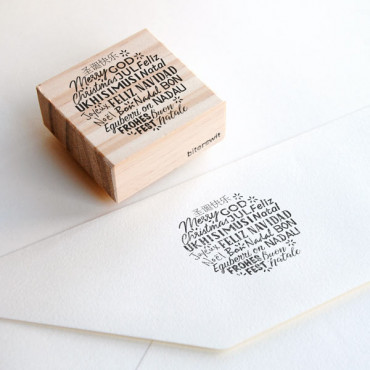 圣诞快乐
Merry GOD
Christmas JUL Feliz
UKHISIMUSI Natal
Joyeux FELIZ NAVIDAD
Noël Bon Nadal BON
Eguberri on NADALI
FROHES Buon
FEST Natale
bitorowit
圣诞快乐
Merry GOD
Christmas JUL Feliz
UKHISIMUSI Natal
Joyeux FELIZ NAVIDAD
Noël Bon Nadal BON
Eguberri on NADALI
FROHES Buon
FEST Natale